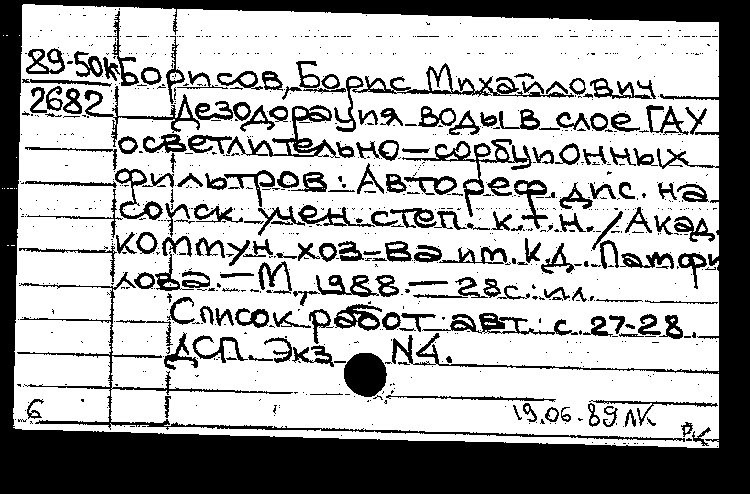 89-50к Борисов, Борис Михайлович.
2682 Дезодорация воды в слое ГАУ
осветлительно-сорбционных
фильтров: Автореф. дис. на
соиск. учен. степ. к.т.н. / Акад.
коммун. хоз-ва им. К.Д. Памфи
лова. — М., 1988. — 28с.: ил.
Список работ авт.: с. 27-28.
ДСП. Экз N4.
6 19.06.89 ЛК
РК